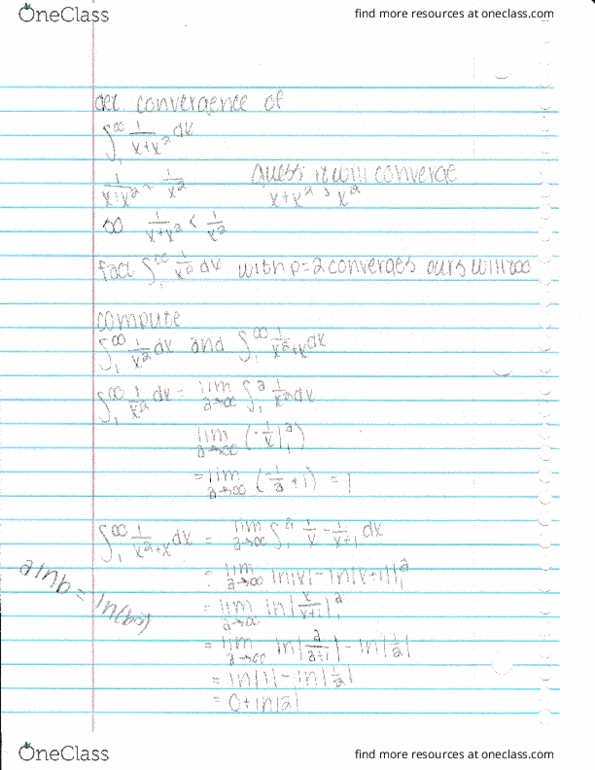 OneClass
find more resources at oneclass.com
det. convergence of
∫₁^∞ 1/(x+x²) dx
1/(x+x²) ~ 1/x² guess it will converge
x+x² > x²
so 1/(x+x²) < 1/x²
fact ∫₁^∞ 1/x² dx with p=2 converges ours will too
compute
∫₁^∞ 1/x² dx and ∫₁^∞ 1/(x²+x) dx
∫₁^∞ 1/x² dx = lim a→∞ ∫₁^a 1/x² dx
lim a→∞ (-1/x |₁^a)
= lim a→∞ (-1/a + 1) = 1
∫₁^∞ 1/(x²+x) dx = lim a→∞ ∫₁^a 1/x - 1/(x+1) dx
= lim a→∞ ln|x| - ln|x+1| |₁^a
a ln b = ln(b^a)
= lim a→∞ ln|x/(x+1)| |₁^a
= lim a→∞ ln|a/(a+1)| - ln|1/2|
= ln|1| - ln|1/2|
= 0 + ln|2|
OneClass
find more resources at oneclass.com